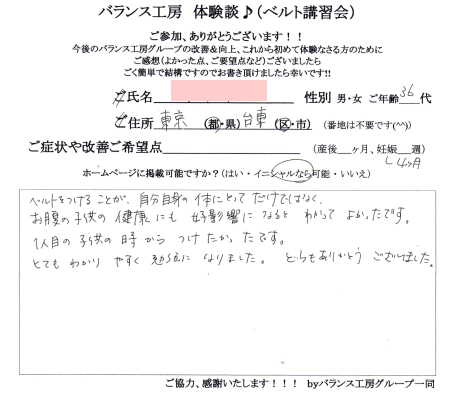 バランス工房 体験談♪(ベルト講習会)
ご参加、ありがとうございます！！
今後のバランス工房グループの改善＆向上、これから初めて体験なさる方のために
ご感想（よかった点、ご要望点など）ございましたら
ごく簡単で結構ですのでお書き頂けましたら幸いです!!
ご氏名 性別 男・女 ご年齢 36 代
ご住所 東京 (都・県) 台東 (区・市) (番地は不要です(^^))
ご症状や改善ご希望点 (産後 ヶ月、妊娠 週)
4ヶ月
ホームページに掲載可能ですか？(はい・イニシャルなら可能・いいえ)
ベルトをつけることが、自分自身の体にとってだけではなく、
お腹の子供の健康にも好影響になるとわかってよかったです。
1人目の子供の時からつけたかったです。
とてもわかりやすく勉強になりました。どうもありがとうございました。
ご協力、感謝いたします！！！ byバランス工房グループ一同